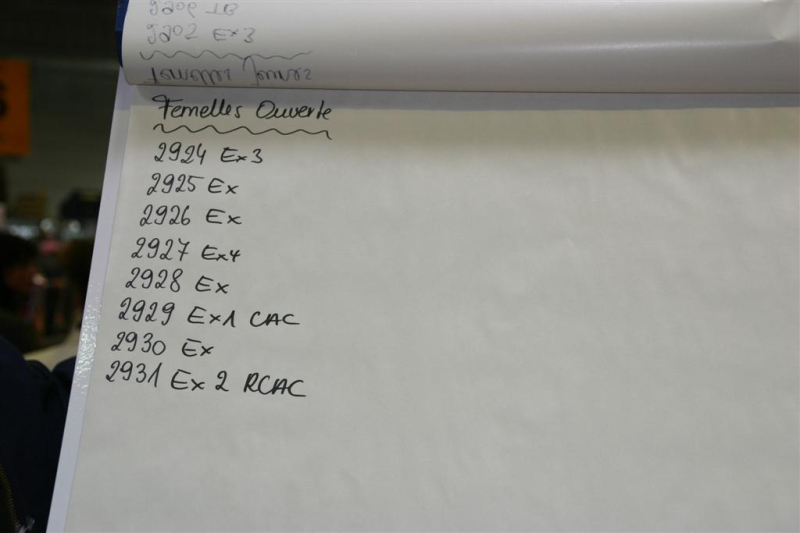 Femelles Ouverte
2924 Ex3
2925 Ex
2926 Ex
2927 Ex4
2928 Ex
2929 Ex1 CAC
2930 Ex
2931 Ex 2 RCAC